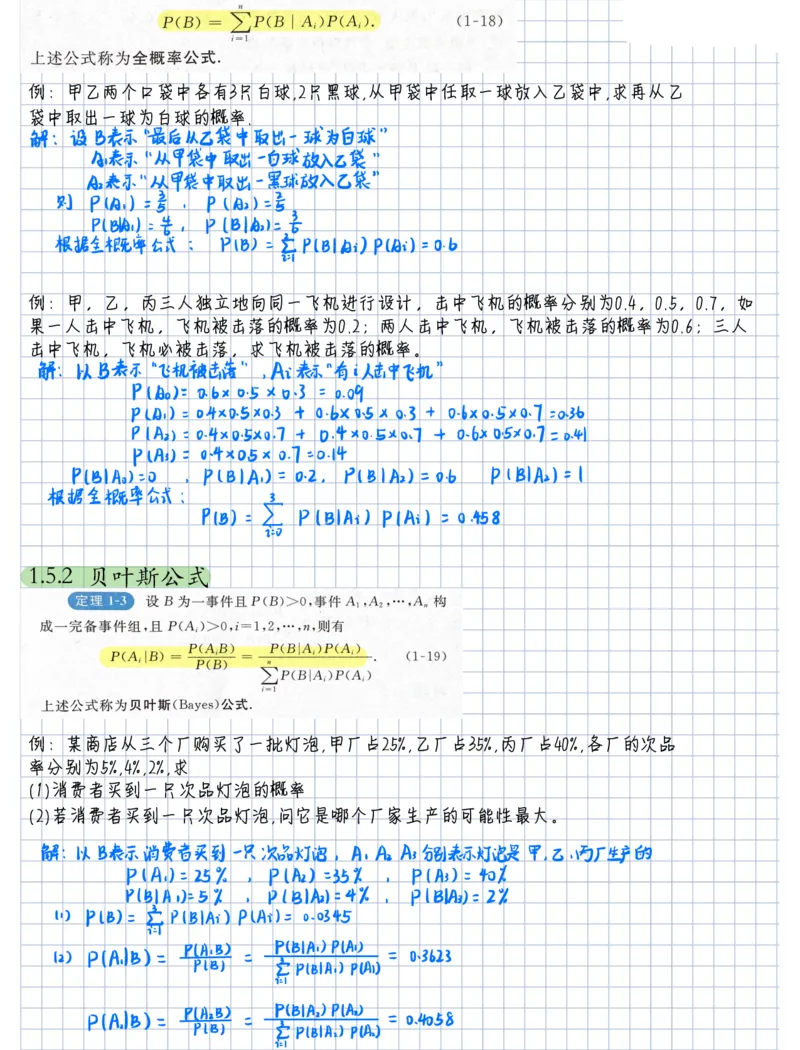 P(B) = ∑_{i=1}^{n} P(B | A_i)P(A_i). (1-18)
上述公式称为全概率公式.
例：甲乙两个口袋中各有3只白球,2只黑球,从甲袋中任取一球放入乙袋中,求再从乙
袋中取出一球为白球的概率.
解：设B表示“最后从乙袋中取出一球为白球”
A₁表示“从甲袋中取出一白球放入乙袋”
A₂表示“从甲袋中取出一黑球放入乙袋”
则 P(A₁) = 3/5 , P(A₂) = 2/5
P(B|A₁) = 4/6 , P(B|A₂) = 3/6
根据全概率公式： P(B) = ∑_{i=1}^{2} P(B|Ai) P(Ai) = 0.6
例：甲，乙，丙三人独立地向同一飞机进行设计，击中飞机的概率分别为0.4，0.5，0.7，如
果一人击中飞机，飞机被击落的概率为0.2；两人击中飞机，飞机被击落的概率为0.6；三人
击中飞机，飞机必被击落，求飞机被击落的概率。
解：以B表示“飞机被击落”，Ai表示“有i人击中飞机”
P(A₀) = 0.6 × 0.5 × 0.3 = 0.09
P(A₁) = 0.4×0.5×0.3 + 0.6×0.5×0.3 + 0.6×0.5×0.7 = 0.36
P(A₂) = 0.4×0.5×0.7 + 0.4×0.5×0.7 + 0.6×0.5×0.7 = 0.41
P(A₃) = 0.4×0.5×0.7 = 0.14
P(B|A₀) = 0 , P(B|A₁) = 0.2, P(B|A₂) = 0.6 P(B|A₂) = 1
根据全概率公式：
P(B) = ∑_{i=0}^{3} P(B|Ai) P(Ai) = 0.458
1.5.2 贝叶斯公式
定理 1-3 设 B 为一事件且 P(B)>0,事件 A₁,A₂,⋯,Aₙ 构
成一完备事件组,且 P(A_i)>0,i=1,2,⋯,n,则有
P(A_i|B) = P(A_iB)/P(B) = P(B|A_i)P(A_i) / ∑_{i=1}^{n} P(B|A_i)P(A_i). (1-19)
上述公式称为贝叶斯(Bayes)公式.
例：某商店从三个厂购买了一批灯泡,甲厂占25%,乙厂占35%,丙厂占40%,各厂的次品
率分别为5%,4%,2%,求
(1)消费者买到一只次品灯泡的概率
(2)若消费者买到一只次品灯泡,问它是哪个厂家生产的可能性最大。
解：以B表示消费者买到一只次品灯泡，A₁ A₂ A₃分别表示灯泡是甲,乙,丙厂生产的
P(A₁) = 25% , P(A₂) = 35% , P(A₃) = 40%
P(B|A₁) = 5% , P(B|A₂) = 4% , P(B|A₃) = 2%
(1) P(B) = ∑_{i=1}^{3} P(B|Ai) P(Ai) = 0.0345
(2) P(A₁|B) = P(A₁B)/P(B) = P(B|A₁)P(A₁) / ∑_{i=1}^{3} P(B|A₁) P(A₁) = 0.3623
P(A₂|B) = P(A₂B)/P(B) = P(B|A₂)P(A₂) / ∑_{i=1}^{3} P(B|A₂) P(A₂) = 0.4058